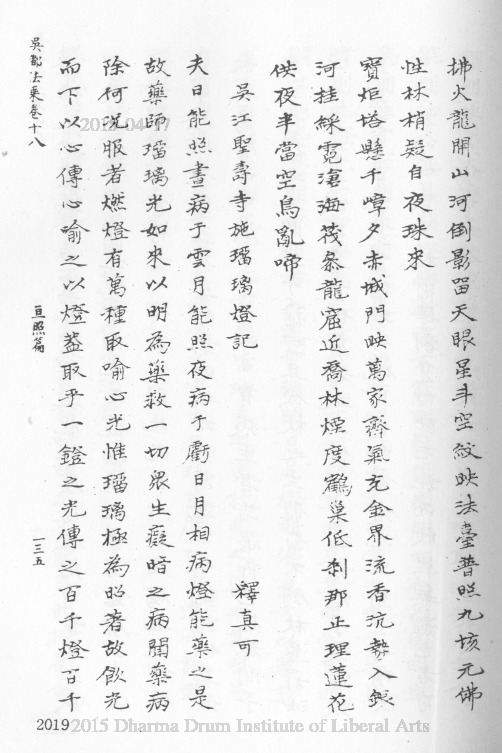 拂火龍開山河倒影留天眼星斗空紋映法臺普照九垓元佛
性林梢疑自夜珠來
寶炬塔懸千嶂夕赤城門映萬家霽氣充金界流香沆勢入銀
河挂綵霓滄海筏叅龍窟近喬林煙度鶴巢低刹那止理蓮花
供夜半當空烏亂啼
吳江聖壽寺施瑠璃燈記　釋真可
夫日能照晝病于雲月能照夜病于虧日月相病燈能藥之是
故藥師瑠璃光如來以明為藥救一切眾生癡暗之病聞藥病
除何況服者燃燈有萬種取喻心光惟瑠璃極為昭著故飲光
而下以心傳心喻之以燈葢取乎一鐙之光傳之百千燈百千
吳都法乘卷十八
亘照篇
一三五
2019
2015 Dharma Drum Institute of Liberal Arts